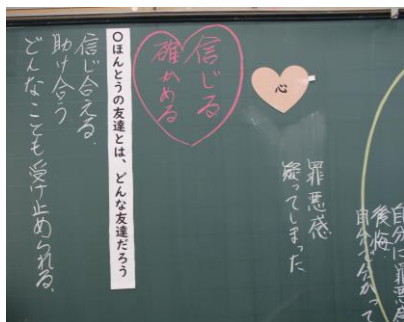 自分に罪悪感
後悔
自分で分かって
心
罪悪感
疑ってしまった
信じる
確かめる
○ほんとうの友達とは、どんな友達だろう
信じ合える。
助け合う
どんなことも受け止められる。